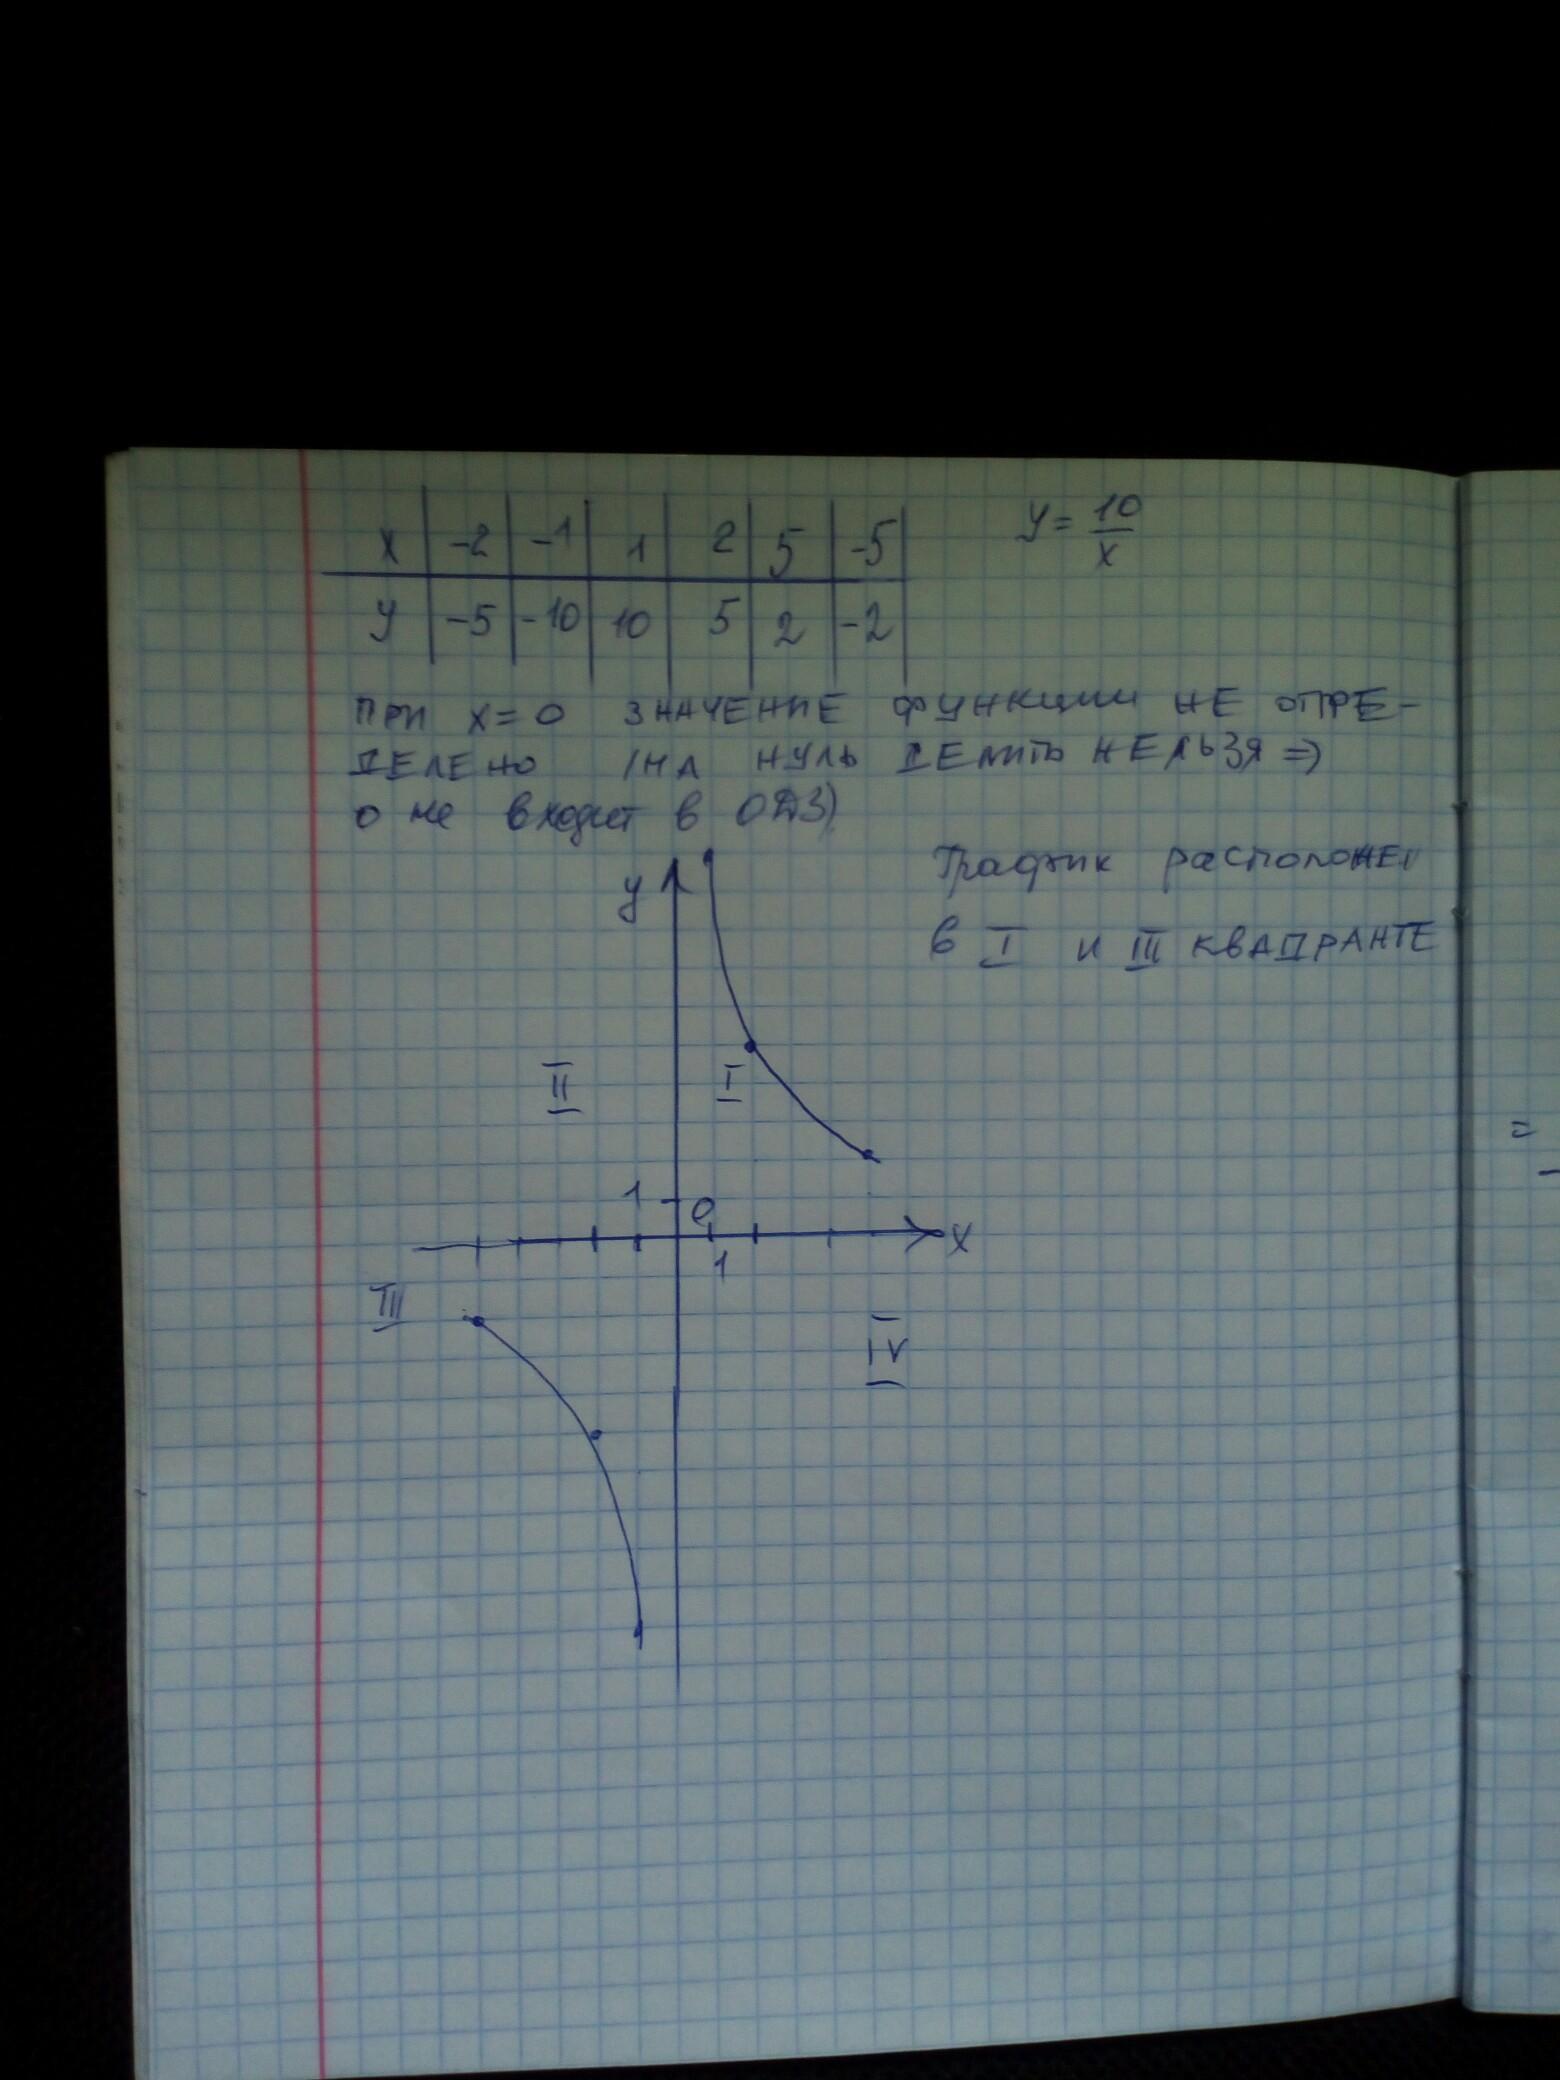 x -2 -1 1 2 5 -5
y -5 -10 10 5 2 -2
y = 10/x
ПРИ x=0 ЗНАЧЕНИЕ ФУНКЦИИ НЕ ОПРЕ-
ДЕЛЕНО (НА НУЛЬ ДЕЛИТЬ НЕЛЬЗЯ =>
0 не входит в ОДЗ)
График расположен
в I и III КВАДРАНТЕ
y
II I
1 0
1 x
III
IV
=
-